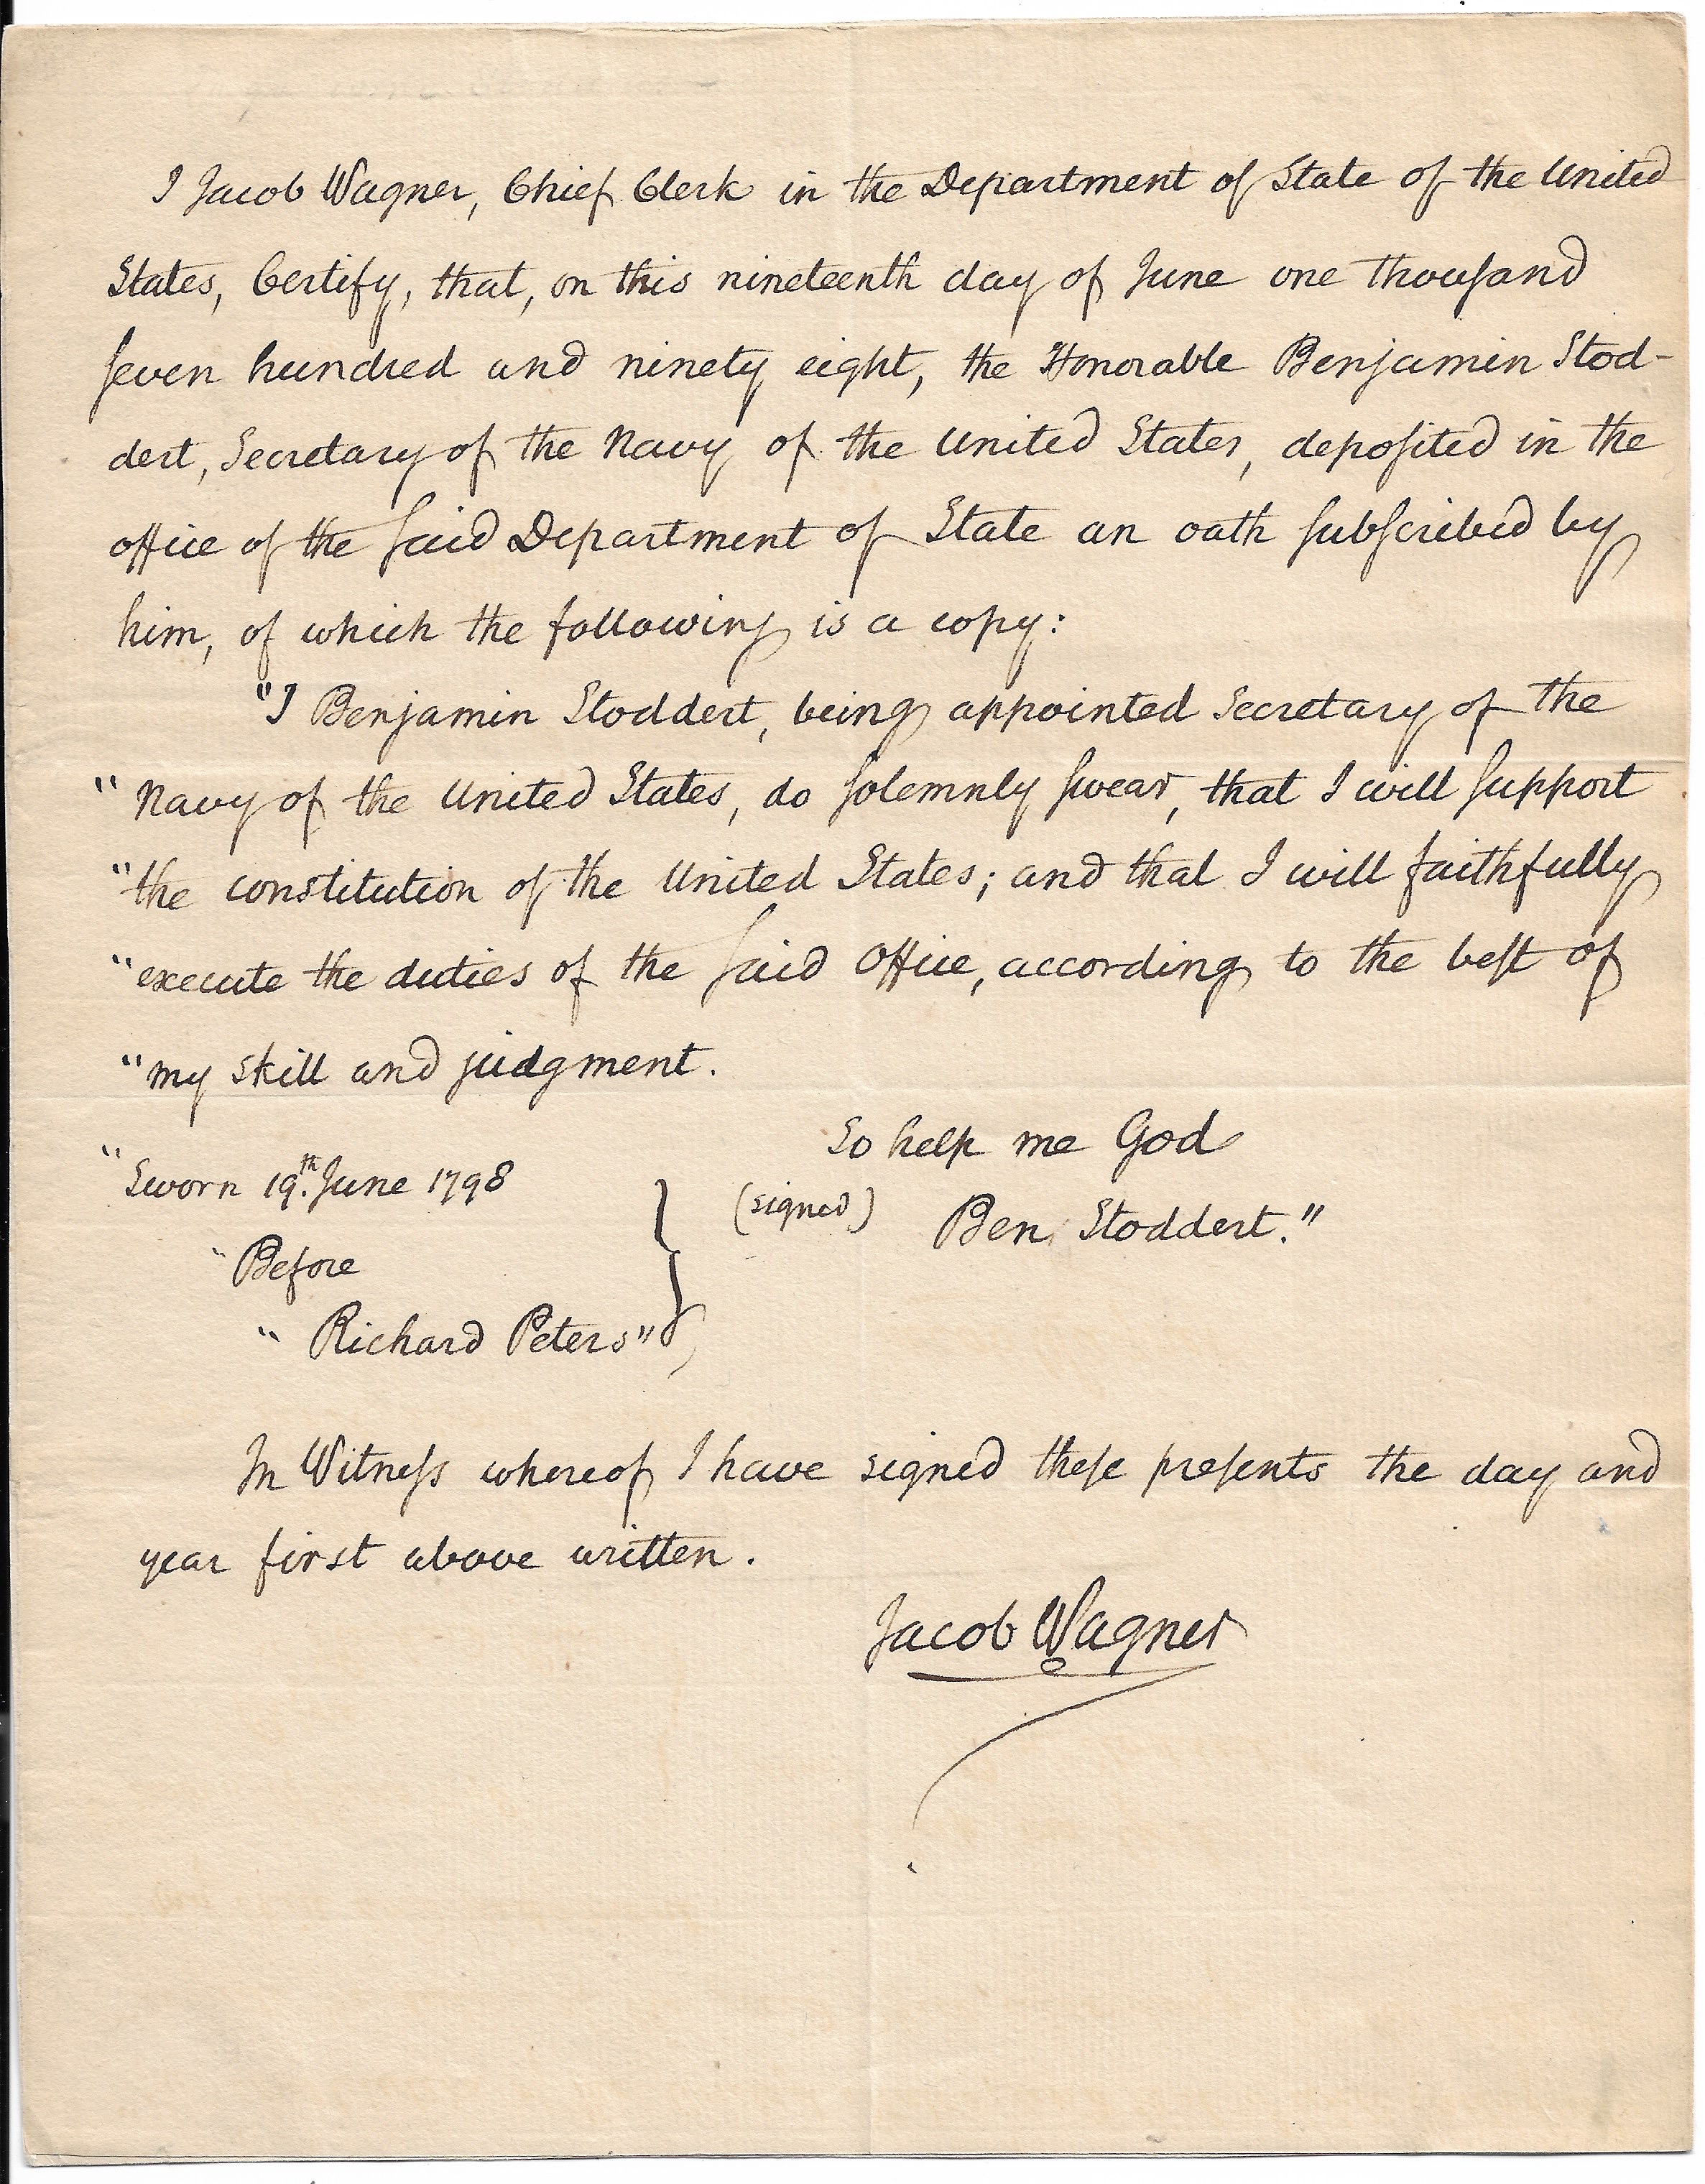 I Jacob Wagner, Chief Clerk in the Department of State of the United
States, Certify, that, on this nineteenth day of June one thouſand
ſeven hundred and ninety eight, the Honorable Benjamin Stod-
dert, Secretary of the Navy of the United States, depoſited in the
office of the ſaid Department of State an oath ſubſcribed by
him, of which the following is a copy:
"I Benjamin Stoddert, being appointed Secretary of the
" Navy of the United States, do ſolemnly ſwear, that I will ſupport
" the constitution of the United States; and that I will faithfully
" execute the duties of the ſaid Office, according to the beſt of
" my skill and judgment.
So help me God
" Sworn 19th. June 1798
(signed) Ben Stoddert."
" Before
" Richard Peters"
In Witneſs whereof I have signed theſe preſents the day and
year first above written.
Jacob Wagner